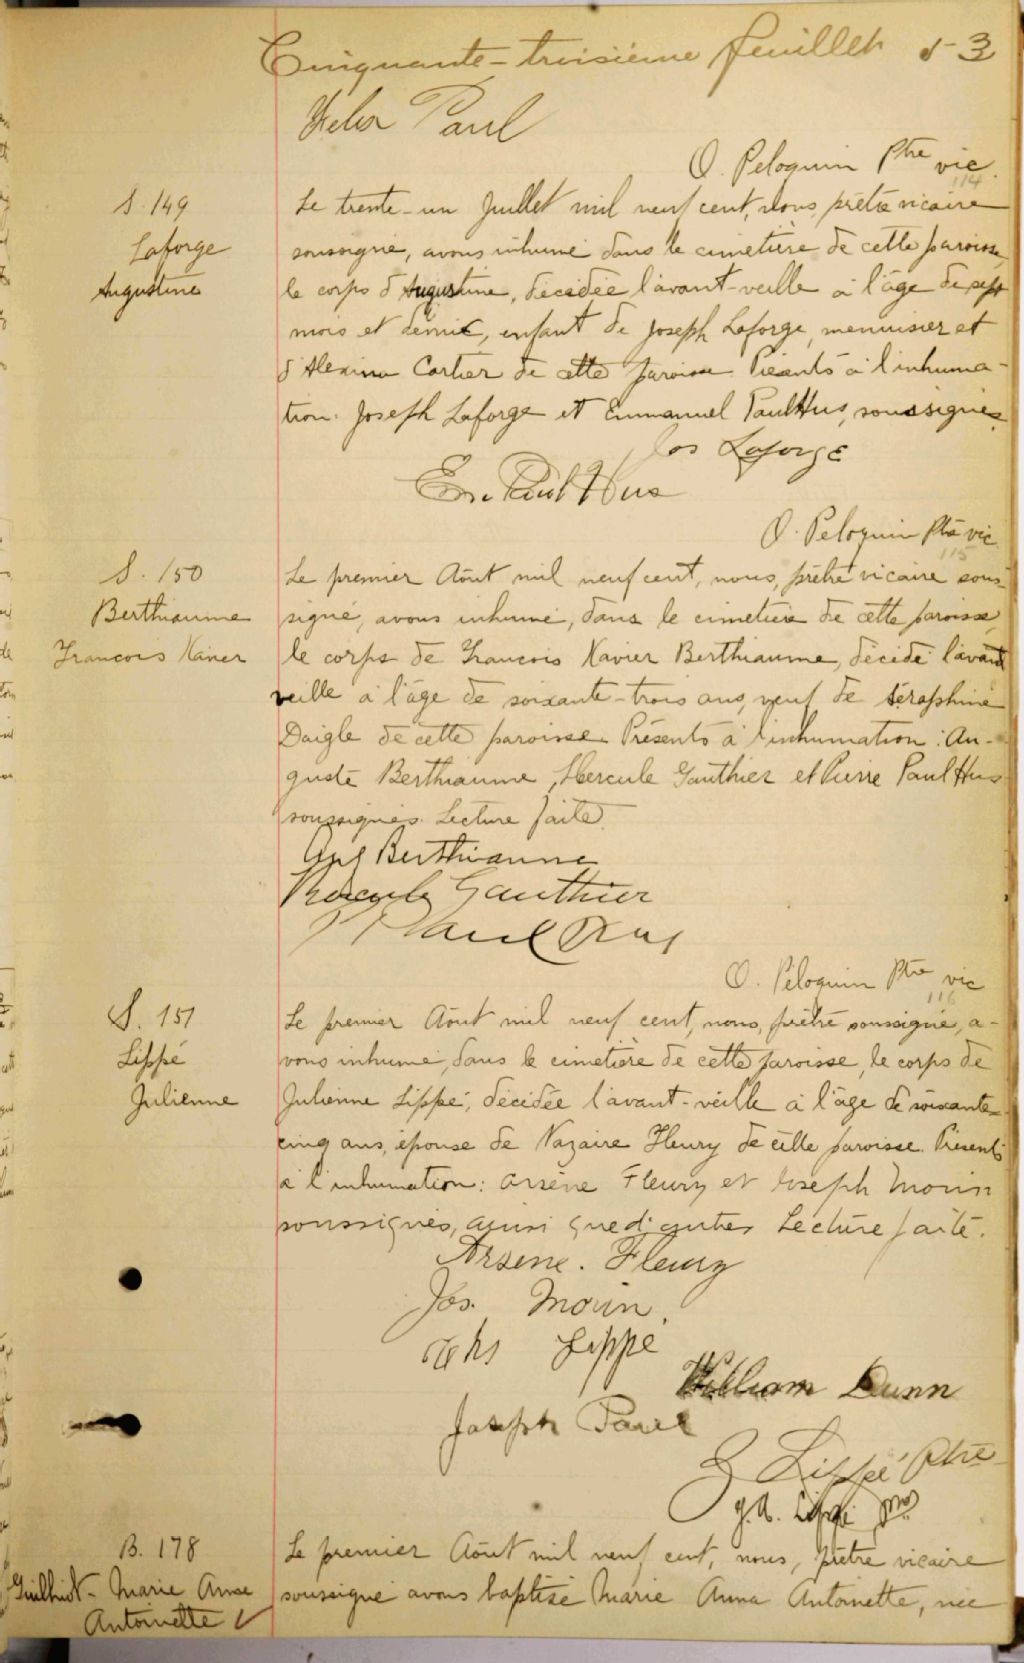 Cinquante-troisième feuillet 53
Félix Paul
O. Peloquin Ptre vic.
114
S. 149
Laforge
Augustine
Le trente-un Juillet mil neuf cent, nous, prêtre vicaire
soussigné, avons inhumé dans le cimetière de cette paroisse,
le corps d'Augustine, décédée l'avant-veille à l'âge de sept
mois et demie, enfant de Joseph Laforge, menuisier et
d'Alexina Cartier de cette paroisse. Présents à l'inhuma-
tion: Joseph Laforge et Emmanuel PaulHus, soussignés.
Jos Laforge
Em. Paul Hus
O. Peloquin Ptre vic.
115
S. 150
Berthiaume
Francois Xavier
Le premier Août mil neuf cent, nous, prêtre vicaire sous-
signé, avons inhumé, dans le cimetière de cette paroisse,
le corps de Francois Xavier Berthiaume, décédé l'avant
veille à l'âge de soixante-trois ans, veuf de Séraphine
Daigle de cette paroisse. Présents à l'inhumation: Au-
guste Berthiaume, Hercule Gauthier et Pierre PaulHus
soussignés. Lecture faite.
Aug Berthiaume
Hercule Gauthier
P Paul Hus
O. Péloquin Ptre vic
116
S. 151
Lippé
Julienne
Le premier Août mil neuf cent, nous, prêtre soussigné, a-
vons inhumé, dans le cimetière de cette paroisse, le corps de
Julienne Lippé, décédée l'avant-veille à l'âge de soixante-
cinq ans, épouse de Nazaire Fleury de cette paroisse. Présents
à l'inhumation: Arsène Fleury et Joseph Morin
soussignés, ainsi que d'autres Lecture faite.
Arsene. Fleury
Jos. Morin.
Lippé
William Dunn
Joseph Paul
Lippé Ptre
J.A. Lippé
B. 178
Guilhiot- Marie Anna
Antoinette ✓
Le premier Août mil neuf cent, nous, prêtre vicaire
soussigné avons baptisé Marie Anna Antoinette, née